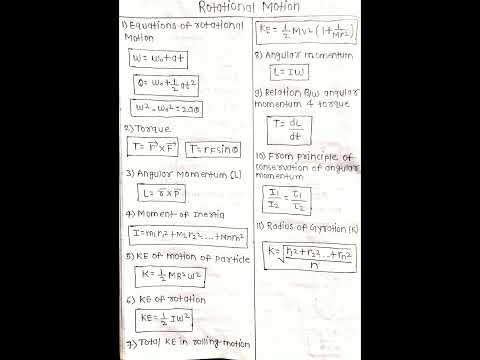 Rotational Motion
1) Equations of rotational
Motion
W = W₀ + αt
θ = W₀ + 1/2 αt²
W² - W₀² = 2αθ
2) Torque
T = r⃗ × F⃗
T = rFsinθ
3) Angular Momentum (L)
L = r⃗ × P⃗
4) Moment of Inertia
I = m₁r₁² + M₂r₂² ... + Mnrn²
5) KE of motion of particle
K = 1/2 MR²ω²
6) KE of rotation
KE = 1/2 Iω²
7) Total KE in rolling motion
KE = 1/2 Mv² (1 + I/Mr²)
8) Angular momentum
L = IW
9) Relation B/w angular
momentum & torque
T = dL/dt
10) From principle of
conservation of angular
momentum
I₁/I₂ = τ₁/τ₂
11) Radius of Gyration (K)
K = √(r₁² + r₂² ... + rn²/n)